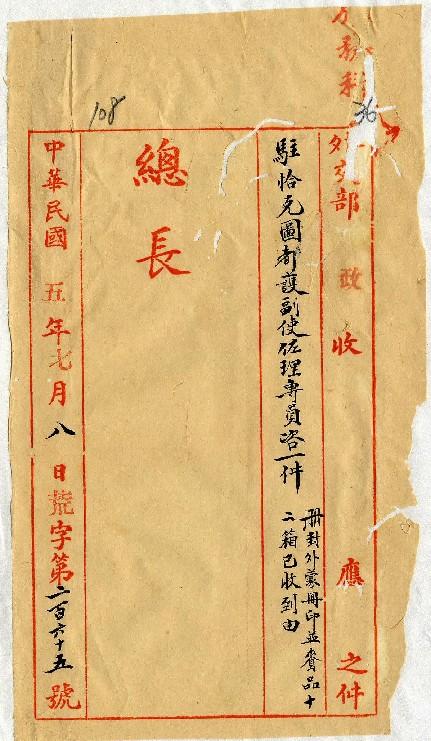 務科
36
108
外交部 政 收 應 之件
駐恰克圖都護副使佐理專員咨一件
冊封外蒙冊印並賚品十
二箱已收到由
總長
中華民國五年七月八日荒字第二百六十五號